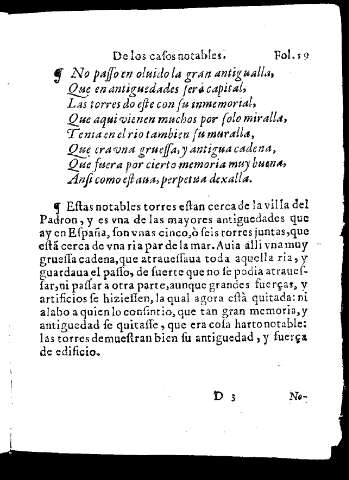 De los casos notables. Fol. 19
¶ No passo en oluido la gran antigualla,
Que en antiguedades sera capital,
Las torres do este con su inmemortal,
Que aqui vienen muchos por solo miralla,
Tenia en el rio tambien su muralla,
Que era vna gruessa, y antigua cadena,
Que fuera por cierto memoria muy buena,
Ansi como estaua, perpetua dexalla.
¶ Estas notables torres estan cerca de la villa del
Padron, y es vna de las mayores antiguedades que
ay en España, son vnas cinco, ò seis torres juntas, que
està cerca de vna ria par de la mar. Auia alli vna muy
gruessa cadena, que atrauessaua toda aquella ria, y
guardaua el passo, de suerte que no se podia atraues-
sar, ni passar a otra parte, aunque grandes fuerças, y
artificios se hiziessen, la qual agora està quitada: ni
alabo a quien lo consintio, que tan gran memoria, y
antiguedad se quitasse, que era cosa harto notable:
las torres demuestran bien su antiguedad, y fuerça
de edificio.
D 3 No-